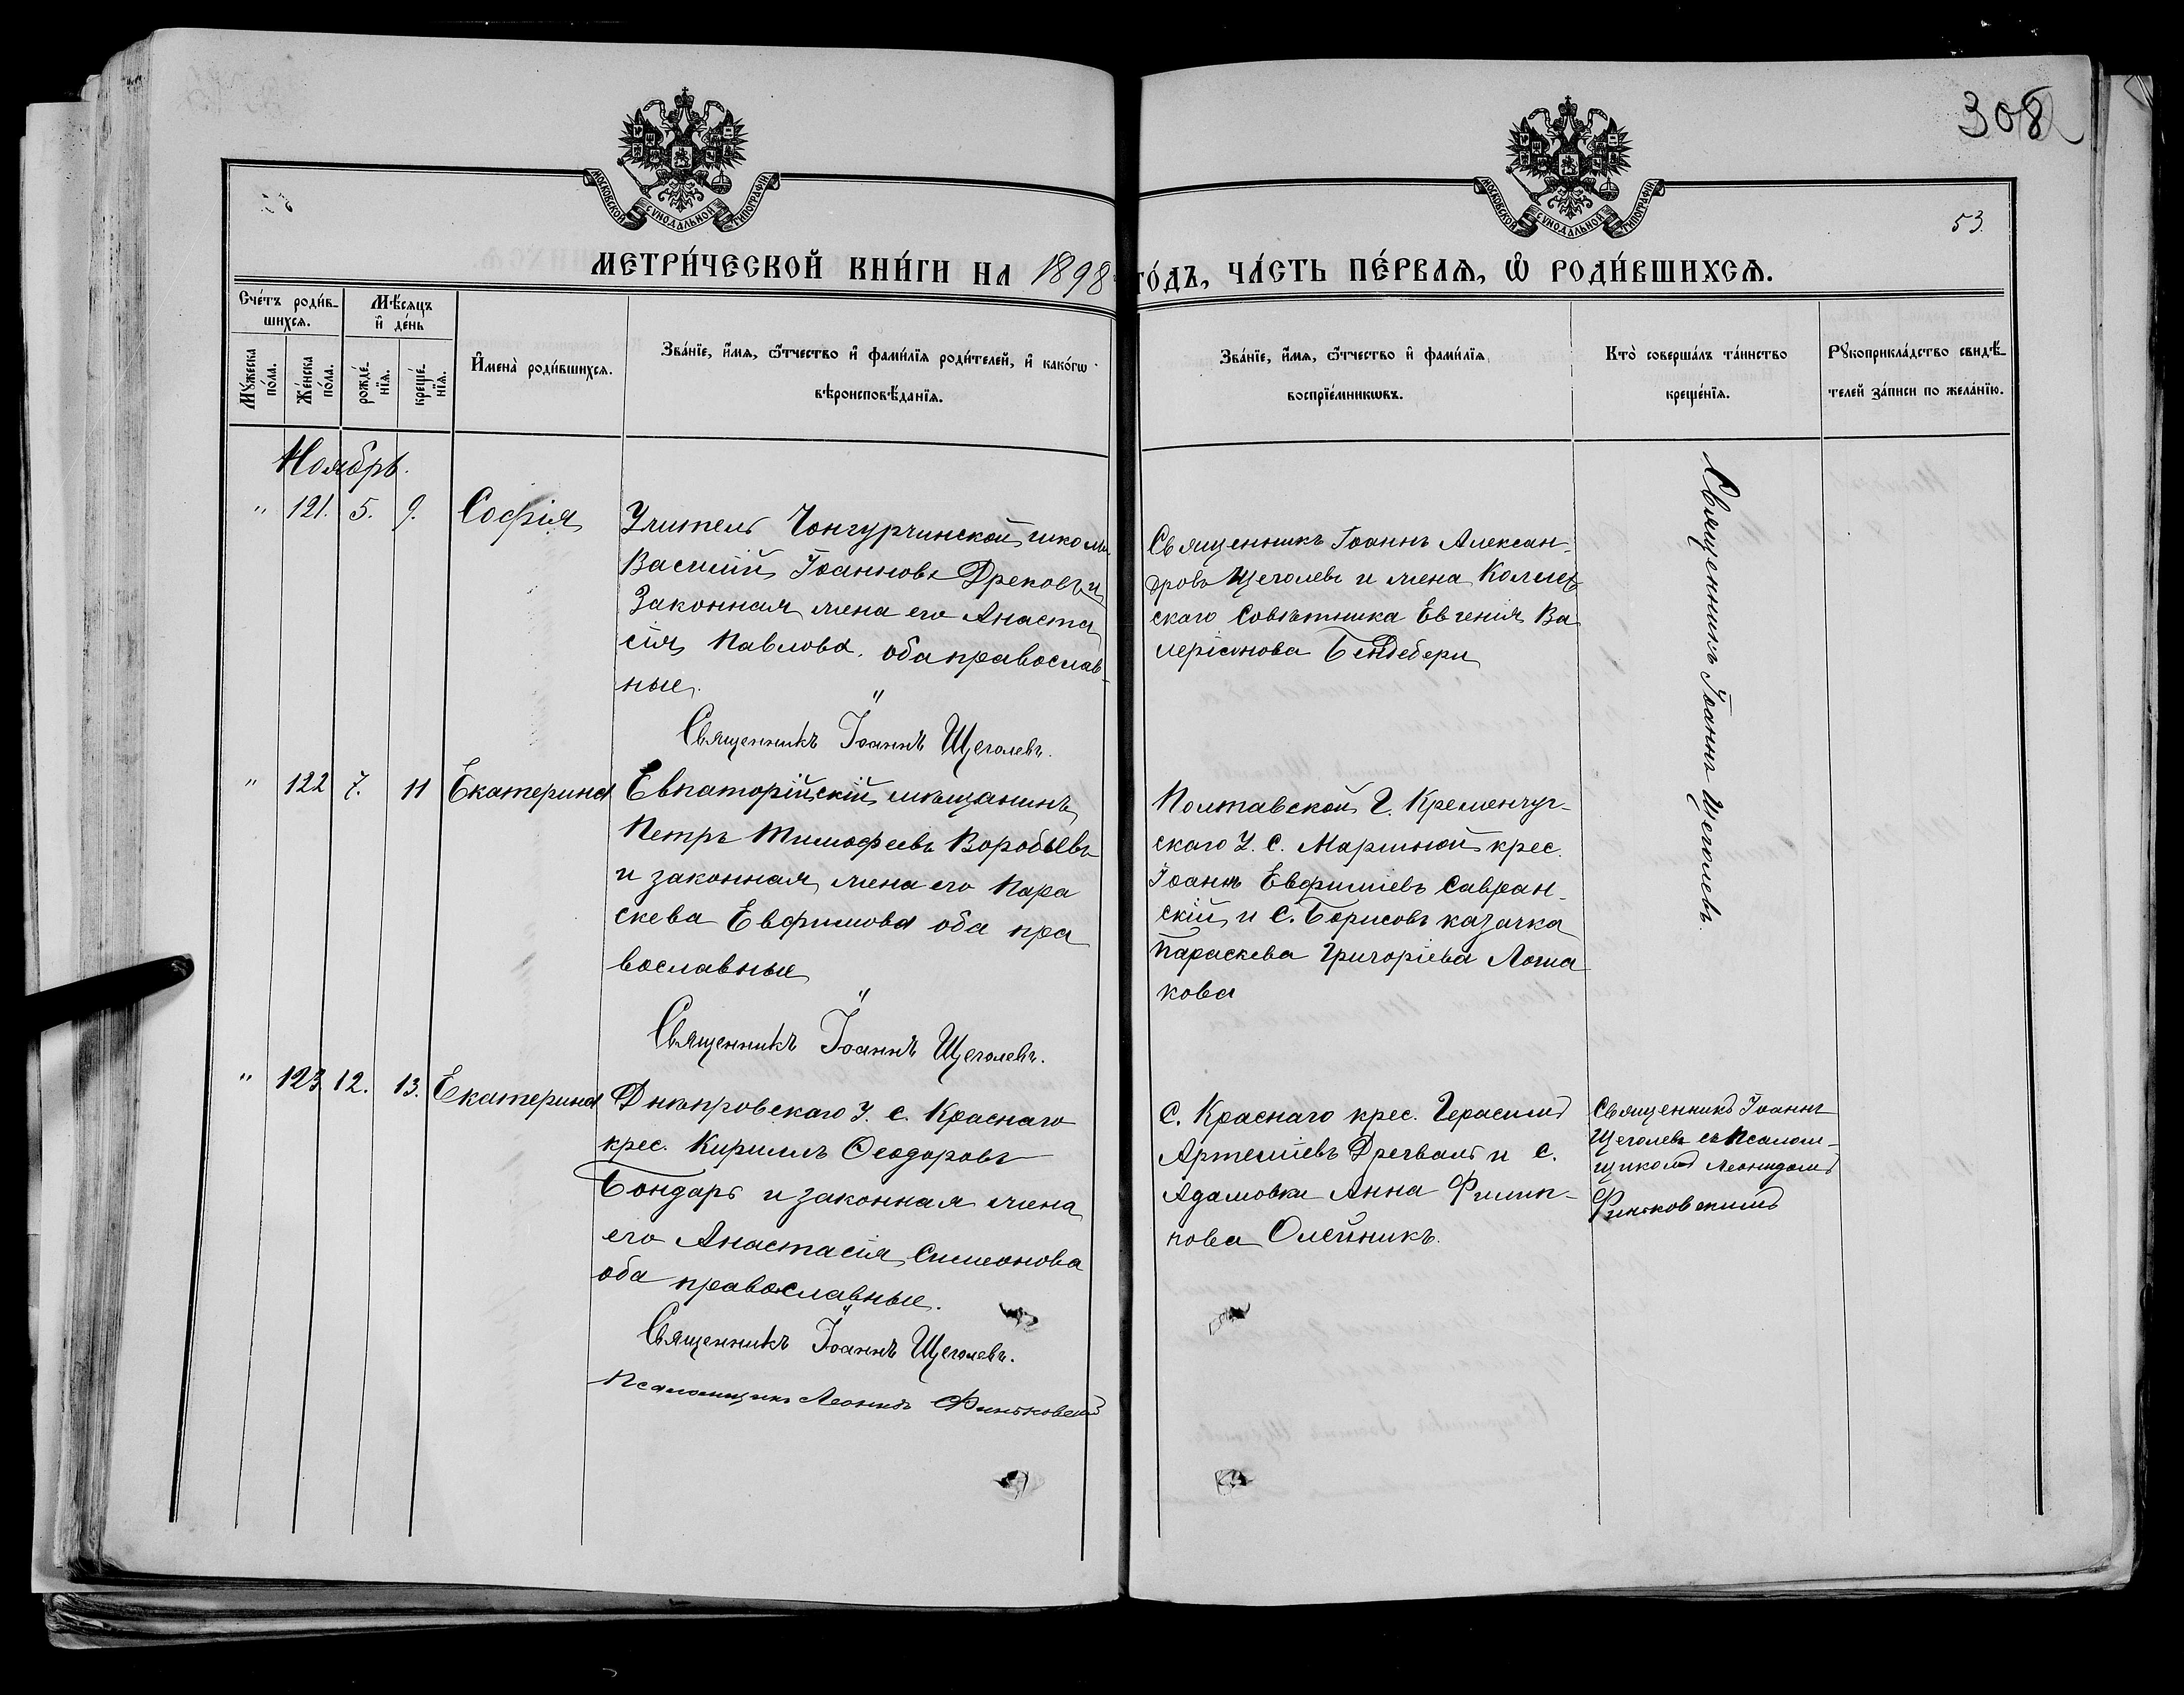 308
53.
МОСКОВСКОЙ СУНОДАЛЬНОЙ ТИПОГРАФІИ
МОСКОВСКОЙ СУНОДАЛЬНОЙ ТИПОГРАФІИ
МЕТРИ́ЧЕСКОЙ КНИ́ГИ НА 1898 го́дъ, ЧА́СТЬ ПЕ́РВАЯ, Ѡ РОДИ́ВШИХСЯ.
Сче́тъ роди́в-
шихся.
Мꙋ́жеска по́ла.
Же́нска по́ла.
Мѣ́сяцъ
и҆ де́нь
рожде́-
нїя.
креще́-
нїя.
И҆мена̀ роди́вшихся.
Зва́нїе, и҆́мя, ѻ҆́тчество и҆ фами́лїя роди́телей, и҆ како́гѡ
вѣроисповѣ́данїя.
Зва́нїе, и҆́мя, ѻ҆́тчество и҆ фами́лїя
воспрїе́мникѡвъ.
Кто̀ соверша́лъ та́инство
креще́нїя.
Рꙋкоприкла́дство свидѣ́-
телей за́писи по жела́нїю.
Ноябрь.
" 121. 5. 9. Софія
Учитель Чонгурчинской школы
Василій Іоанновъ Дрековъ и
Законная жена его Анаста
сія Павлова. оба православ-
ные.
Священникъ Іоаннъ Щеголевъ.
Священникъ Іоаннъ Алексан-
дровъ Щеголевъ и жена Коллеж
скаго Совѣтника Евгенія Ва
леріанова Бендебери
Священникъ Іоаннъ Щеголевъ.
" 122 7. 11 Екатерина
Евпаторійскій мѣщанинъ
Петръ Тимофеевъ Воробьевъ
и законная жена его Пара
скева Евфимова оба пра
вославные
Священникъ Іоаннъ Щеголевъ.
Полтавской Г. Кременчуг-
скаго У. С. Марьиной крес.
Іоаннъ Евфиміевъ Савран-
скій и С. Борисовъ казачка
Параскева Григоріева Лоша
кова
" 123 12. 13. Екатерина
Днѣпровскаго У. с. Краснаго
крес. Кириллъ Ѳеодоровъ
Бондарь и законная жена
его Анастасія Симеонова
оба православные.
Священникъ Іоаннъ Щеголевъ.
Псаломщикъ Леонидъ Финьковскій
С. Краснаго крес. Герасимъ
Артеміевъ Дрегваль и С.
Адамовки Анна Филип-
пова Олейникъ.
Священникъ Іоаннъ
Щеголевъ съ Псалом-
щикомъ Леонидомъ
Финьковскимъ